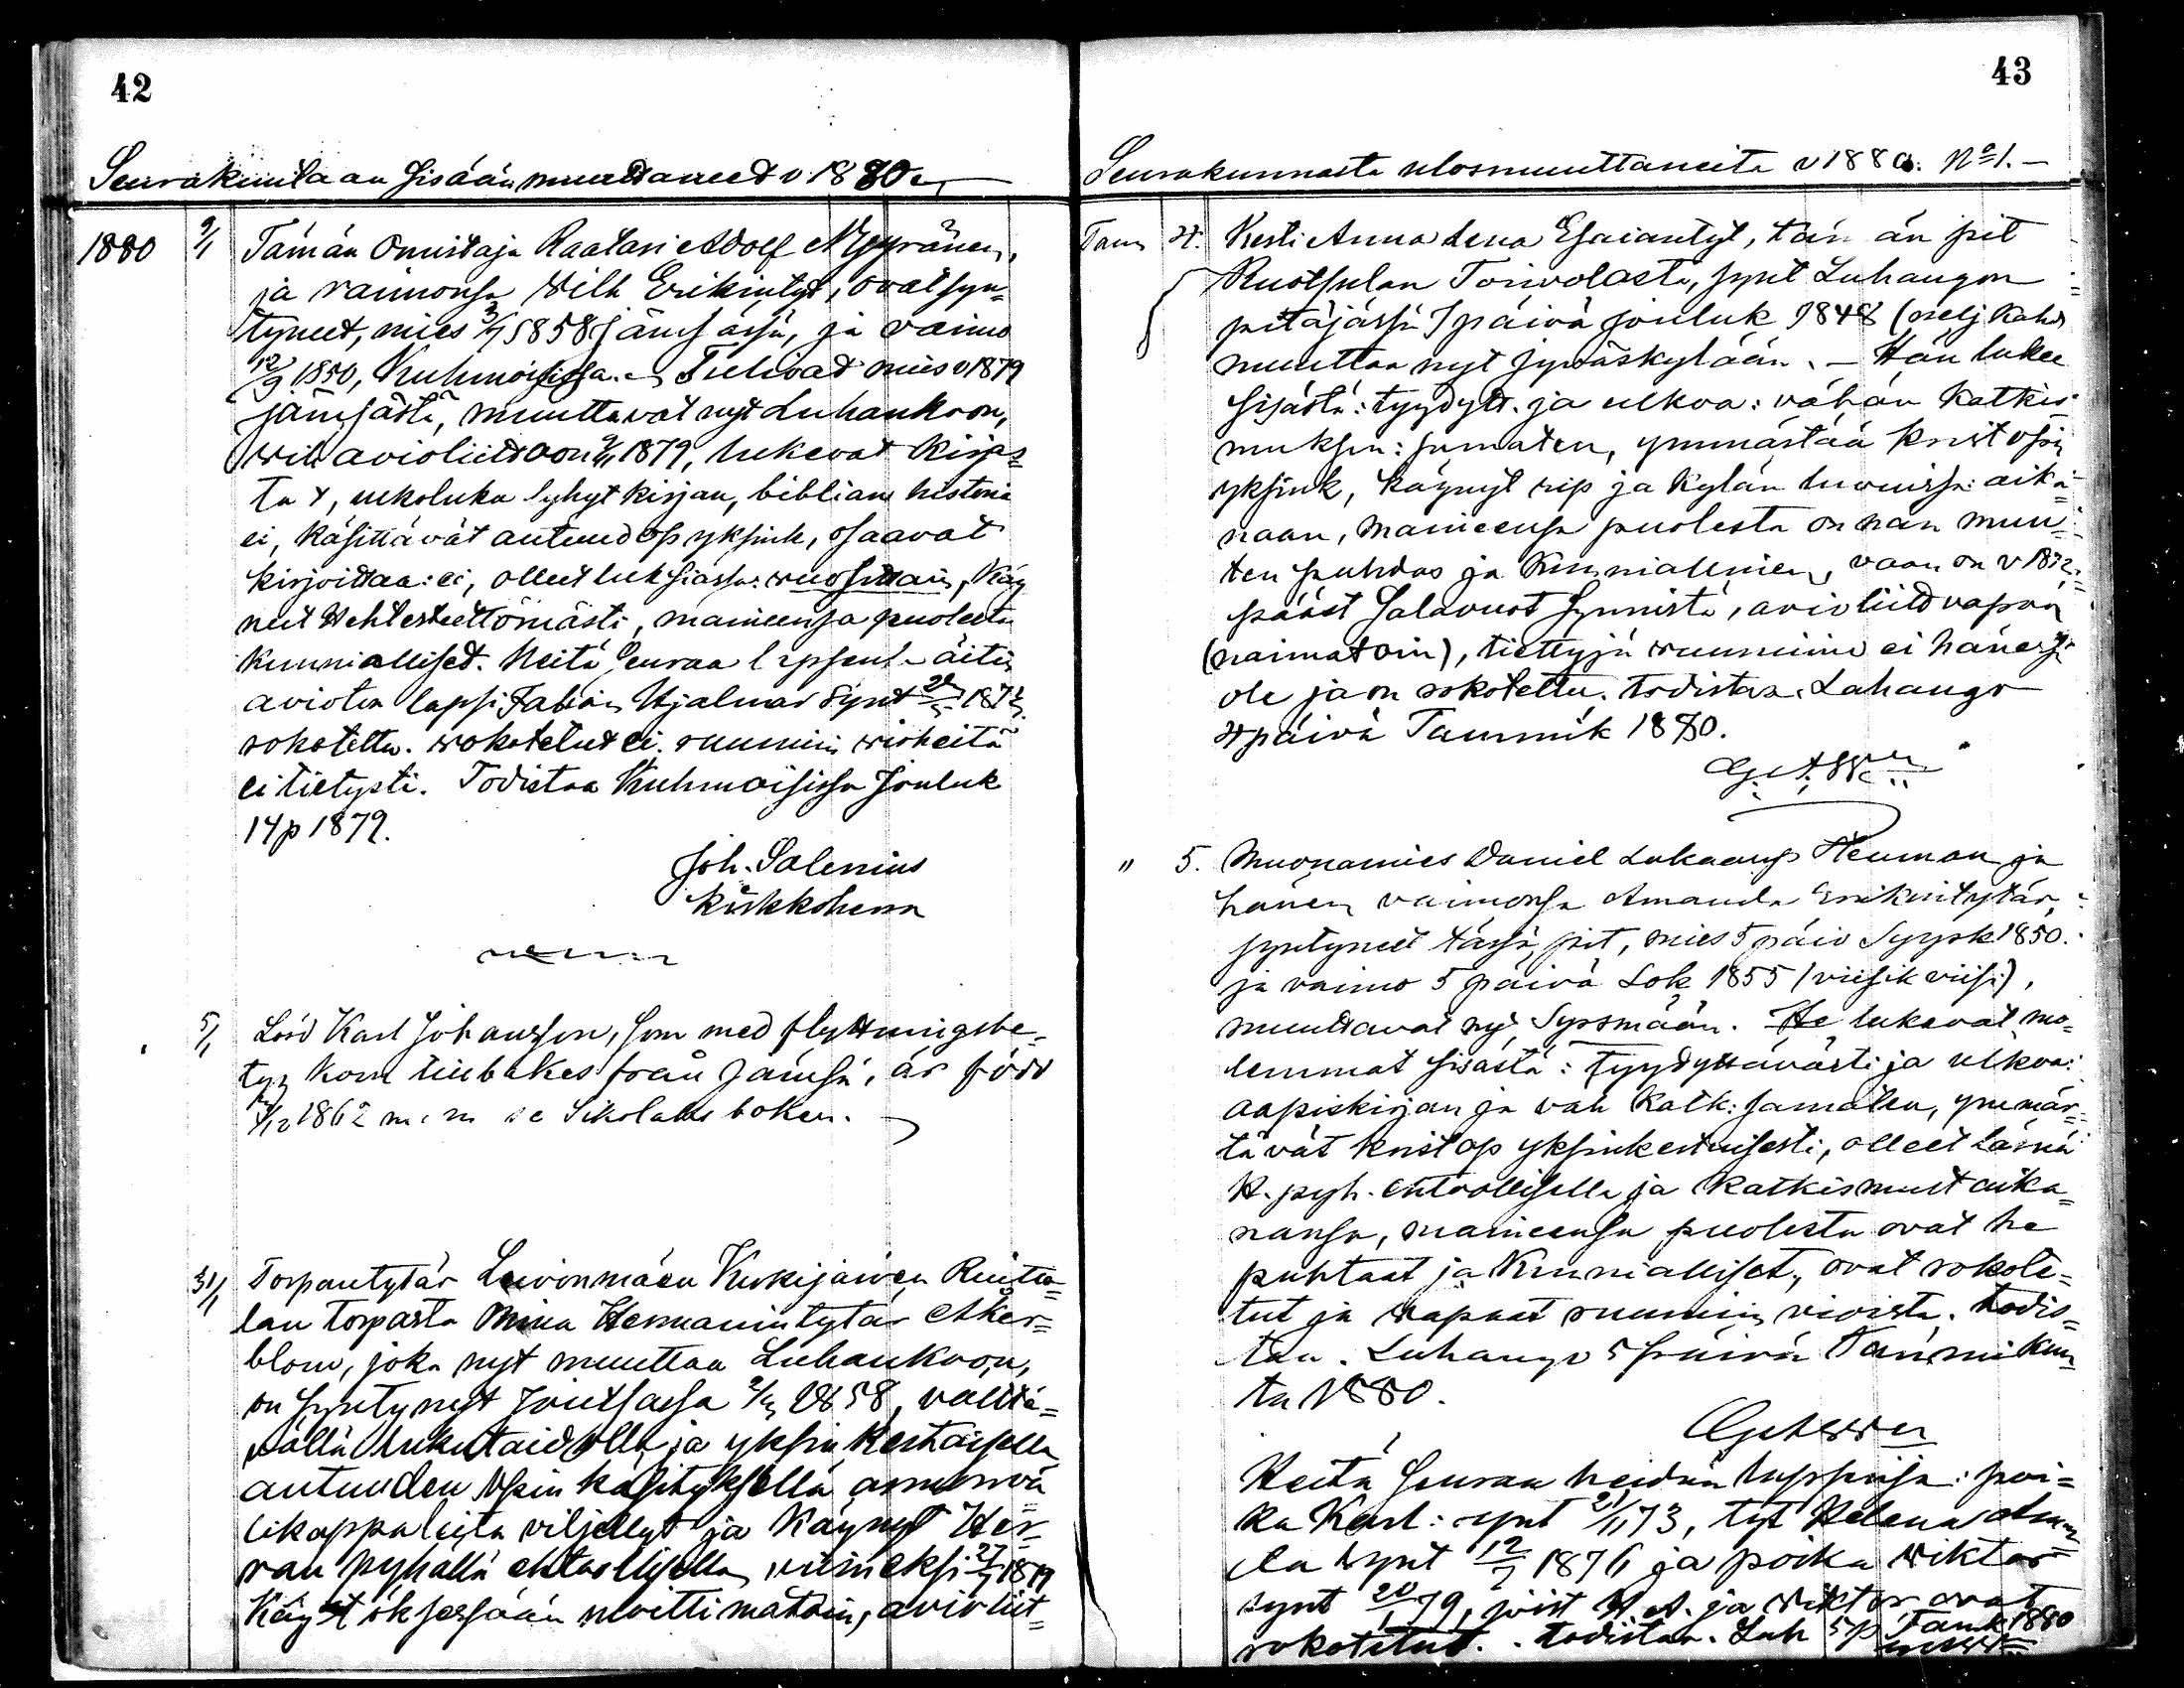 42
Seurakuntaan sisäänmuuttaneet v. 1880
1880 9/1 Tämän Omistaja Raatari Adolf Myyränen,
ja vaimonsa Wilh Erikintyt, ovat syn-
tyneet, mies 3/7 1858 Jämsässä, ja vaimo
12/9 1850, Kuhmoisissa. Tulivat mies v 1879
Jämsästä, muuttavat nyt Luhankoon,
wih avioliittoon 1879, lukevat kirjas-
ta x, ulkoluku lyhyt kirjan, biblian historia
ei, käsittävät autuud op yksink, osaavat
kirjoittaa: ei, olleet lukusiassa: wuosittain, käy
neet Hehtesteettömästi, maineensa puolesta
kunnialliset. Heitä seuraa lapsena äitin
aviotoin lapsi Fabian Hjalmar synt
rokotettu. wokotetut ei. ruumiin wirheitä
ei tietysti. Todistaa Kuhmoisissa Jouluk
14p 1879.
Joh. Salenius
Kirkkoherra
5/1 Karl Johansson, som med flyttningsbe-
tyg kom tillbakes från Jämsä, är född
1862 m. m se Skolans boken.
31/1 Torpantytär Leivonmäen Kurkijärven
lan torpasta Miina Hermanintytär Åker-
blom, joka nyt muuttaa Luhankoon,
on syntynyt Joutsassa 1858, välttä-
vällä lukutaidolla ja yksinkertaisella
autuuden opin käsityksellä ammenna
likappaleita viljellyt ja käynyt Her-
ran pyhällä ehtoollisella viimeksi 27/7 1879
Käytöksessään moittimatoin, avioliit-
43
Seurakunnasta ulosmuuttaneita v 1880. No 1.
Tam 4. Kesti Anna Lena Esaiantyt, tän än pit
Ruotsulan Toivolasta, synt Luhangon
pitäjässä 7 päivä jouluk 1848 (nelj kahd
muuttaa nyt Jyväskylään. - Hän lukee
sisästä: tyydytt. ja ulkoa: vähän katkis-
muksen: samaten, ymmästää krist opin
yksink, käynyt rip ja kylän luwuissa: aika-
naan, maineensa puolesta on hän muu-
ten puhdas ja kunniallinen, vaan on v 1872
pääst salavuot synnistä, avioliitt vapaa
(naimatoin), tiettyjä ruumiin ei hänessä
ole ja on rokotettu. todistaa. Luhango
4 päivä Tammik 1880.
" 5. Muonamies Daniel Lukanp Heuman ja
hänen vaimonsa Amanda Erikintytär,
syntyneet tässä pit, mies 5 päiv Syysk 1850.
ja vaimo 5 päivä Lok 1855 (viisik viisi),
muuttavat ny Sysmään. He lukevat mo-
lemmat sisästä: tyydyttävästi ja ulkoa:
aapiskirjan ja väh katk: samaten, ymmär-
tävät krist op yksinkertaisesti, olleet läsnä
H. pyh. ehtoollisella ja katkismust aika-
nansa, maineensa puolesta ovat he
puhtaat ja kunnialliset, ovat rokote-
tut ja wapaat ruumiin vioista. todis-
taa. Luhango 5 päivä Tammikuu
ta 1880.
Heitä seuraa heidän lappsija: poi-
ka Karl: synt 21/11 73, tyt Helena Aman
da synt 12/7 1876 ja poika Wiktor
synt 20/1 79, joist H. A. ja Wiktor ovat
rokotetut. todistaa. Luh 5p Tamk 1880